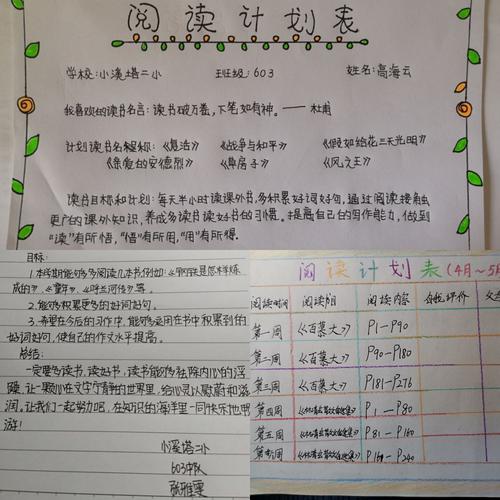 阅读计划表
学校:小溪塔二小 班级:603 姓名:高海云
我喜欢的读书名言:读书破万卷,下笔如有神。——杜甫
计划读书名称:《复活》 《战争与和平》 《假如给我三天光明》
《亲爱的安德烈》 《草房子》 《风之王》
读书目标和计划:每天半小时读课外书,多积累好词好句,通过阅读接触
更广的课外知识,养成多读书读好书的习惯。提高自己的写作能力,做到
“读”有所悟,“悟”有所用,“用”有所得.
目标:
1.本學期能够多多阅读几本书例如:《钢铁是怎样炼
成的》、《童年》、《呼兰河传》等。
2.能够积累更多的好词好句。
3.希望在今后的习作中,能够运用在书中积累到的
好词好句,使自己的作文水平提高。
总结:
一定要多读书,读好书,读书能够祛除内心的浮
躁,让一颗心在文字宁静的世界里,给心灵以慰藉和滋
润,让我们一起努力吧,在知识的海洋里一同快乐地畅
游!
小溪塔二小
603中队
张雅雯
阅读计划表(4月~5月
阅读时间 阅读书目 阅读内容 自我评价 父
第一周 《百慕大》 P1-P90
第二周 《百慕大》 P90-P180
第三周 《百慕大》 P181-P276
第四周 P1-P80
第五周 P81-P160
第六周 P240